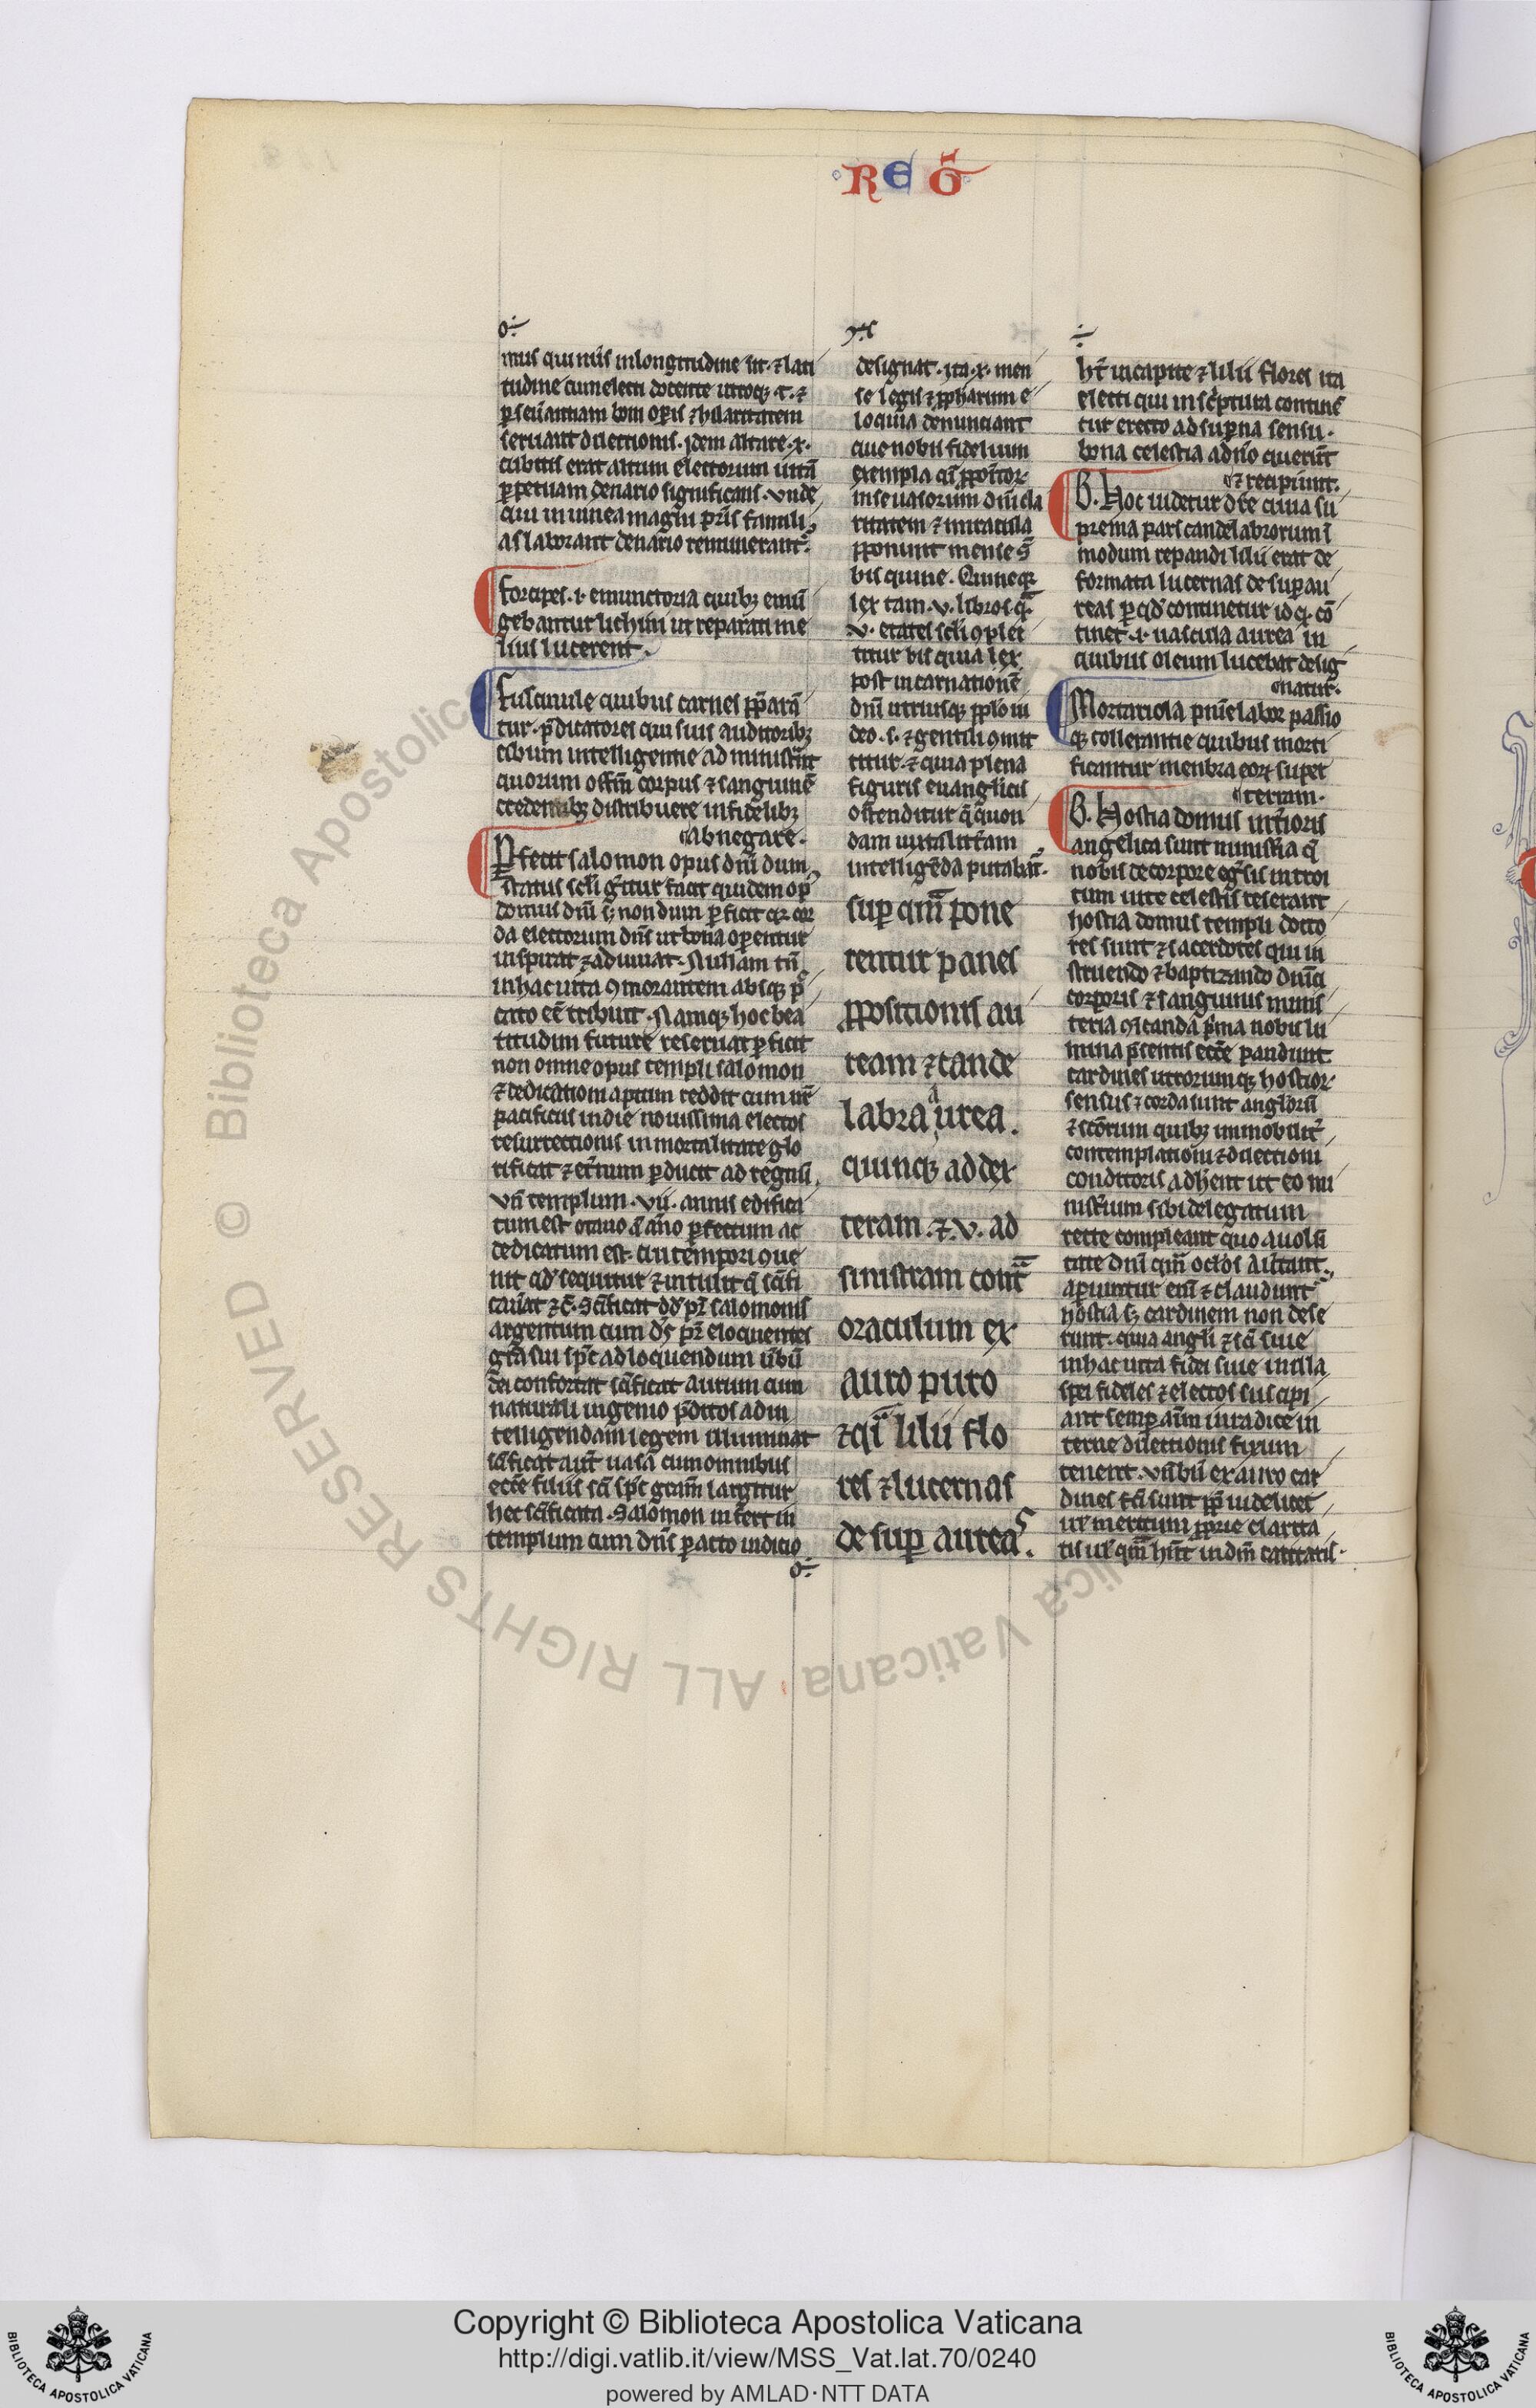 REG̃
mus qui nr̄is in longitudine sit ⁊ lati
tudine cum electi docente utroq; t. ⁊
p̱seuerantiam boni op̱is ⁊ hilaritatem
seruant dilectionis. Idem altare .x.
cubitis erat altum electorum uitā
p̱petuam denario significans. Vnde
qui in uinea magni pr̄is famili
as laborant denario remunerant᷑.
forcipes .i. emunctoria quibꝫ emū
gebantur lichini ut reparati me
lius lucerent.
fuscinule quibus carnes p̄parā
tur. p̄dicatores qui suis auditoribꝫ
cibum intelligentie administrāt
quorum offm̄ corpus ⁊ sanguinē
credentibꝫ distribuere infidelibꝫ
abnegare.
P̱fecit salomon opus dn̄i dum
status sc̄li geritur facit quidem op̱
domus dn̄i sꝫ nondum p̱ficit qꝛ cor
da electorum dn̄s ut bona op̱entur
inspirat ⁊ adiuuat. Nullam tn̄
in hac uita ꝯmorantem absqꝫ pec
cato ee᷑ tribuit. Namqꝫ hoc bea
titudini future reseruat p̱ficit
non omne opus templi salomon
⁊ dedicationi aptum reddit cum nr̄
pacificus in die nouissima electos
resurrectionis inmortalitate glo
rificat ⁊ et̄num p̱ducit ad regnū.
Vn̄ templum .vii. annis edifica
tum est octauo ā anno p̱fectum ac
dedicatum est. cui tempori ꝯue
nit qd̄ sequitur ⁊ intulit q̄ sc̄ifi
cauerat ⁊c̄. Sc̄ificat dd̄ pr̄ salomonis
argentum cum ds̄ pr̄ eloquentes
gr̄a sui sp̄c ad loquendum u̅bū
dei confortat sc̄ificat aurum cum
naturali ingenio p̄ditos ad in
telligendam legem illuminat
sc̄ificat aut̄ uasa cum omnibus
ecc̄e filiis sc̄i sp̄c gram̄ largitur
hec sc̄ificata. Salomon infert in
templum cum dn̄s p̱acto iudicio
designat. ita .x. men
se legis ⁊ p̄pharum e
loquia denunciant
que nobis fidelium
exempla
ritatem ⁊ miracula
p̱ponunt mense
bis quine. Quineqꝫ
lex tam .v. libros q̄
.v. etates sc̄li ꝯplec
titur bis quia lex
post incarnationē
dn̄i utriusqꝫ pp̱lo iu
deo .s. ⁊ gentili ꝯmit
titur. ⁊ quia plena
figuris euanglicis
ostenditur
dam iuxta litt̄am
intelligēda putabāt.
sup̱ qm̄ pone
rentur panes
p̱positionis au
ream ⁊ cande
labra aurea.
quinqꝫ ad dex
teram .⁊ .v. ad
sinistram cont̄
oraculum ex
auro puro
⁊ q̄i lilii flo
res ⁊ lucernas
desup̱ aureas.
ht̄ in capite ⁊ lilii flores ita
electi qui in sc̄ptura contine
tur erecto ad sup̱na sensu.
bona celestia adn̄o querūt
⁊ recipiunt.
B. Hoc uidetur dr̄e cuia su
prema pars candelabrorum ī
modum repandi lilii erat de
formata lucernas desup̱ au
reas p̱ qd̄ continetur id q̄ cō
tinet .i. uascula aurea in
quibus oleum lucebat desig
natur.
Mortariola pnīe labor passio
qꝫ tollerantie quibus morti
ficantur menbra eoꝝ super
terram.
B. Hostia domus int̄ioris
angelica sunt minist̄ia q̄
nobis de corpore eg̃ssis introi
tum uite celestis reserant
hostia domus templi docto
res sunt ⁊ sacerdotes qui in
struendo ⁊ baptizando dnīci
corporis ⁊ sanguinis minis
teria ꝯicanda p̄ma nobis li
mina p̄sentis ecc̄e pandunt
cardines utrorumqꝫ hostior
sensus ⁊ corda sunt angloꝝ
⁊ sc̄orum quibꝫ inmobilit̄
contemplationi ⁊ dilectioni
conditoris adherent ut eo mi
nist̄ium sibi delegatum
recte compleant quo a uolū
tate dn̄i qm̄ oclōs auertant.
ap̱iuntur eni̅ ⁊ clauduntur
hostia sꝫ cardinem non dese
runt. quia angli ⁊ sc̄i siue
in hac uita fidei siue in illa
spei fideles ⁊ electos suscipi
ant semp̱ aīm in radice in
terne dilectionis fixum
tenent. Vn̄ bn̄ ex auro car
dines fc̄i sunt p̄p uidelicet
ut̄ meritum p̄prie clarita
tis ul̄ qm̄ hn̄t in dm̄ caritatis.
Copyright © Biblioteca Apostolica Vaticana
http://digi.vatlib.it/view/MSS_Vat.lat.70/0240
powered by AMLAD·NTT DATA
BIBLIOTECA APOSTOLICA VATICANA
BIBLIOTECA APOSTOLICA VATICANA
© Biblioteca Apostolica Vaticana ALL RIGHTS RESERVED